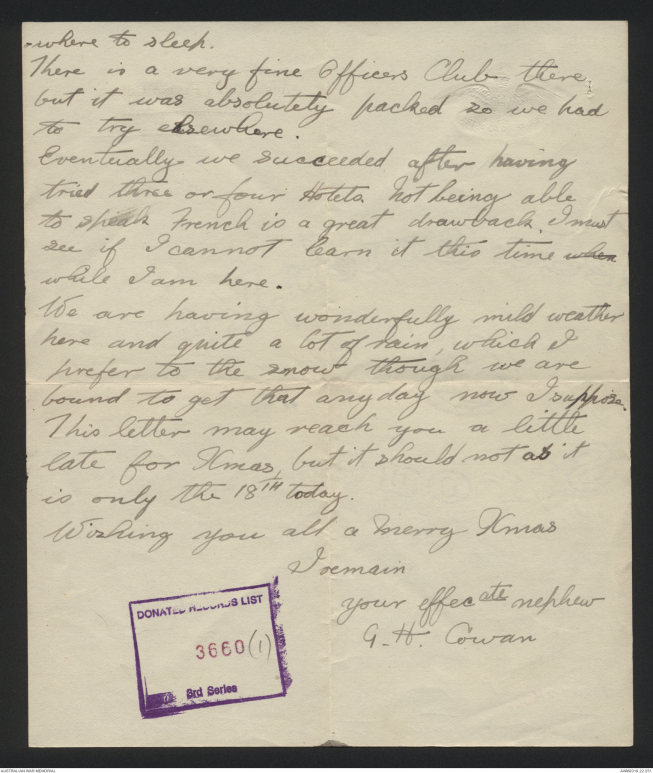 -where to sleep.
There is a very fine Officers Club there,
but it was absolutely packed so we had
to try elsewhere.
Eventually we succeeded after having
tried three or four Hotels. Not being able
to speak French is a great drawback. I must
see if I cannot learn it this time when
while I am here.
We are having wonderfully mild weather
here and quite a lot of rain, which I
prefer to the snow though we are
bound to get that any day now I suppose.
This letter may reach you a little
late for Xmas, but it should not as it
is only the 18TH today.
Wishing you all a Merry Xmas
I remain
your effecate nephew
G. H. Cowan
DONATED RECORDS LIST
3660 (1)
3rd Series
AUSTRALIAN WAR MEMORIAL